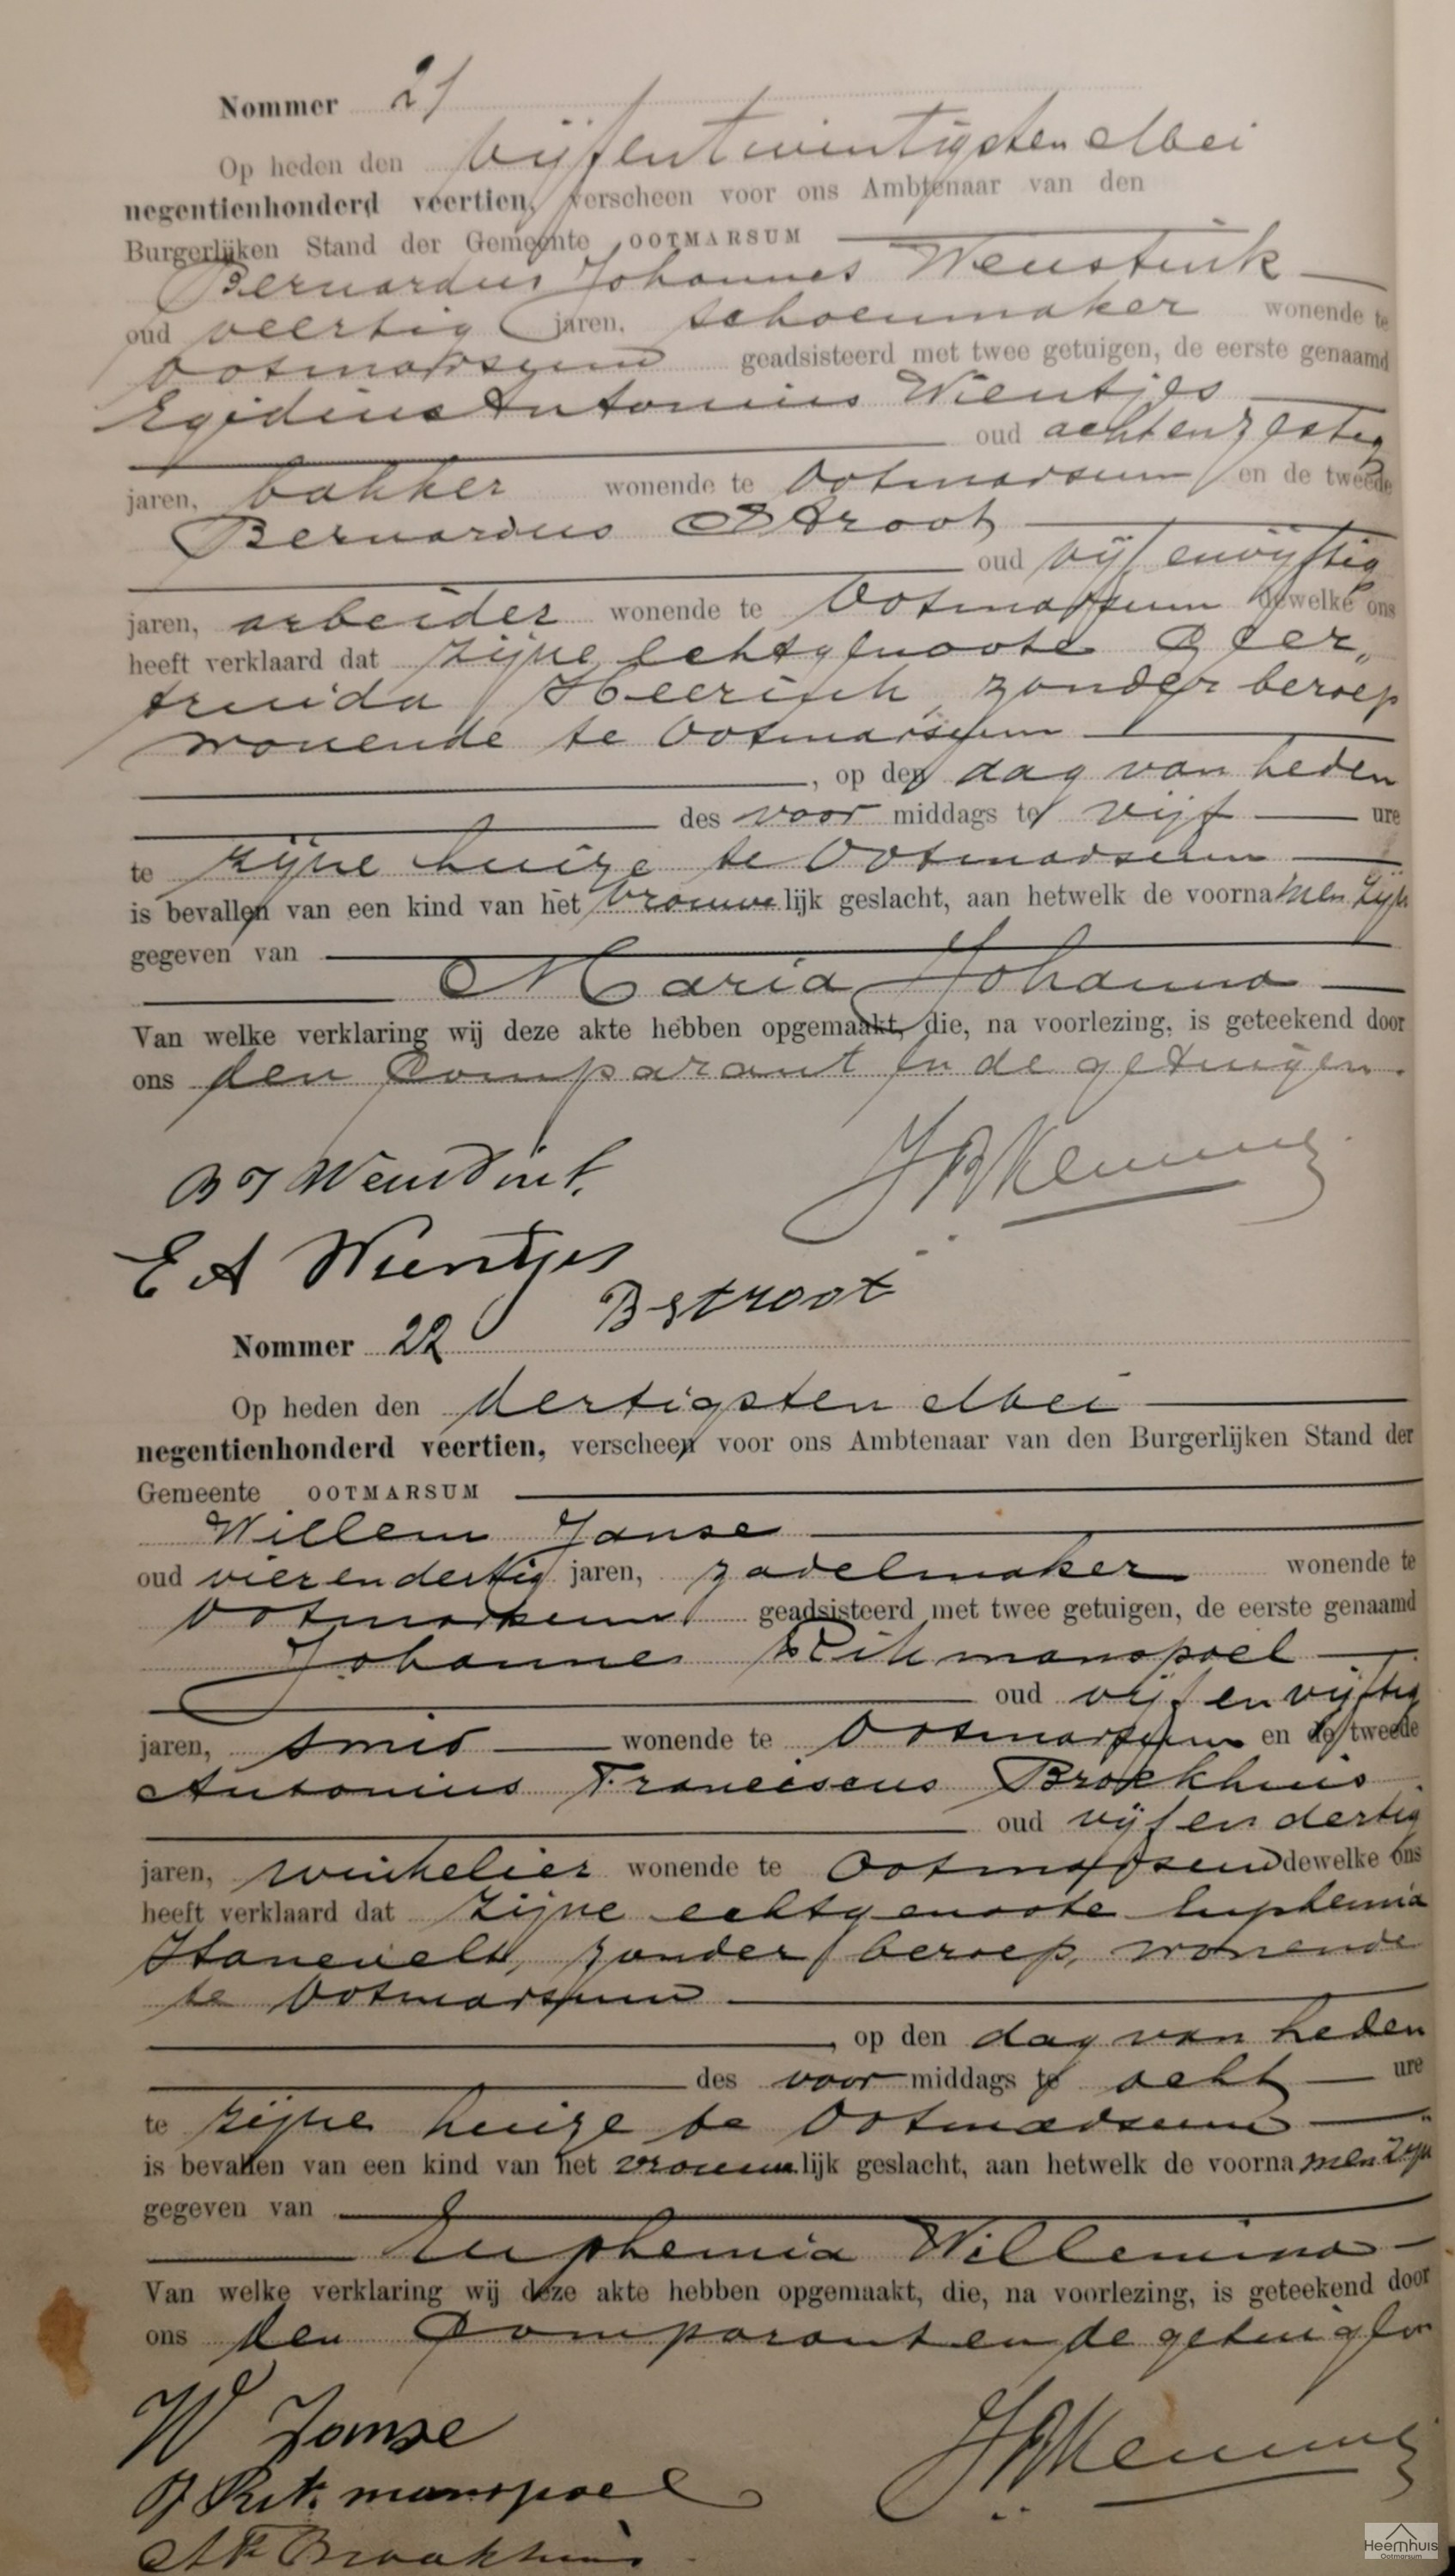 Nommer 21
Op heden den vijfentwintigsten Mei
negentienhonderd veertien, verscheen voor ons Ambtenaar van den
Burgerlijken Stand der Gemeente OOTMARSUM
Bernardus Johannes Weustink
oud veertig jaren, schoenmaker wonende te
Ootmarsum geadsisteerd met twee getuigen, de eerste genaamd
Egidius Antonius Wientjes
oud achtenzestig
jaren, bakker wonende te Ootmarsum en de tweede
Bernardus Stroot
oud vijfenvijftig
jaren, arbeider wonende te Ootmarsum dewelke ons
heeft verklaard dat zijne echtgenoote Geer,
truida Heerink, zonder beroep
wonende te Ootmarsum
, op den dag van heden
des voor middags te vijf ure
te zijne huize te Ootmarsum
is bevallen van een kind van het vrouwelijk geslacht, aan hetwelk de voornamen zijn
gegeven van
Maria Johanna
Van welke verklaring wij deze akte hebben opgemaakt, die, na voorlezing, is geteekend door
ons den Comparant en de getuigen.
BJ Weustink.
E A Wientjes
B Stroot
Nommer 22
Op heden den dertigsten Mei
negentienhonderd veertien, verscheen voor ons Ambtenaar van den Burgerlijken Stand der
Gemeente OOTMARSUM
Willem Janse
oud vierendertig jaren, zadelmaker wonende te
Ootmarsum geadsisteerd met twee getuigen, de eerste genaamd
Johannes Rikmanspoel
oud vijfenvijftig
jaren, smid wonende te Ootmarsum en de tweede
Antonius Franciscus Brookhuis
oud vijfendertig
jaren, winkelier wonende te Ootmarsum dewelke ons
heeft verklaard dat zijne echtgenoote Euphemia
zonder beroep, wonende
te Ootmarsum
, op den dag van heden
des voor middags te acht ure
te zijne huize te Ootmarsum
is bevallen van een kind van het vrouwelijk geslacht, aan hetwelk de voornamen zijn
gegeven van
Euphemia Willemina
Van welke verklaring wij deze akte hebben opgemaakt, die, na voorlezing, is geteekend door
ons den Comparant en de getuigen
W Janse
J Rikmanspoel
AF Brookhuis
Heemhuis
Ootmarsum